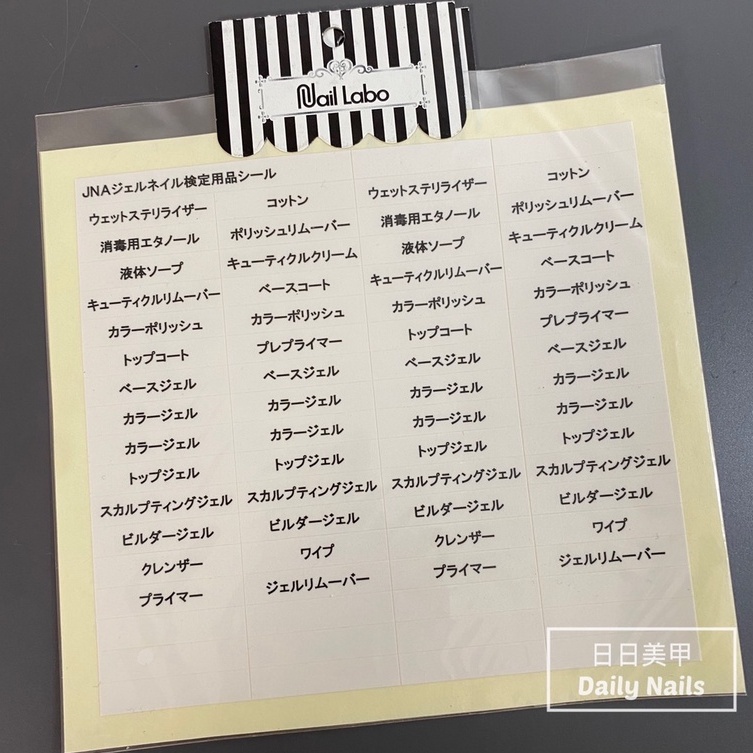 Nail Labo
JNAジェルネイル検定用品シール
ウェットステリライザー
消毒用エタノール
液体ソープ
キューティクルリムーバー
カラーポリッシュ
トップコート
ベースジェル
カラージェル
カラージェル
トップジェル
スカルプティングジェル
ビルダージェル
クレンザー
プライマー
コットン
ポリッシュリムーバー
キューティクルクリーム
ベースコート
カラーポリッシュ
プレプライマー
ベースジェル
カラージェル
カラージェル
トップジェル
スカルプティングジェル
ビルダージェル
ワイプ
ジェルリムーバー
ウェットステリライザー
消毒用エタノール
液体ソープ
キューティクルリムーバー
カラーポリッシュ
トップコート
ベースジェル
カラージェル
カラージェル
トップジェル
スカルプティングジェル
ビルダージェル
クレンザー
プライマー
コットン
ポリッシュリムーバー
キューティクルクリーム
ベースコート
カラーポリッシュ
プレプライマー
ベースジェル
カラージェル
カラージェル
トップジェル
スカルプティングジェル
ビルダージェル
ワイプ
ジェルリムーバー
日日美甲
Daily Nails